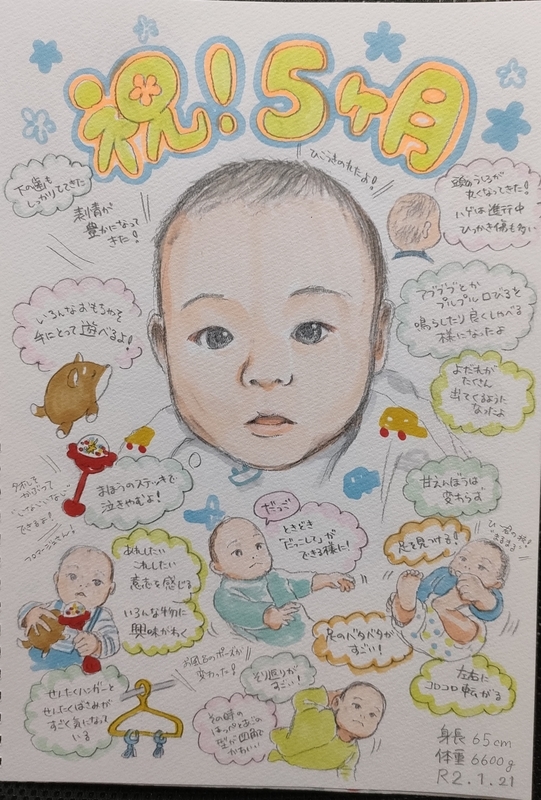 祝!5ヶ月
ひこうきのれたよ!
下の歯も
しっかりでてきた
表情が
豊かになって
きた!
頭のうしろが
丸くなってきた!
ハゲは進行中
ひっかき傷も多い
いろんなおもちゃを
手にとって遊べるよ!
ブブブブとか
プルプル口びるを
鳴らしたり良くしゃべる
様になったよ
よだれが
たくさん
出てくるように
なったよ
まほうのステッキで
泣きやむよ!
甘えんぼうは
変わらず
できるよ!
あれしたい
これしたい
意志を感じる
いろんな物に
興味がわく
だっこ
ときどき
「だっこして」が
できる様に!
足を見つける!
足のバタバタが
すごい!
左右に
コロコロ転がる
せんたくハンガーと
せんたくばさみが
すごく気になって
いる
お風呂のポーズが
変わった!
そり返りが
すごい!
その時の
ほっぺとあごの
型が四角で
かわいい!
身長 65cm
体重 6600g
R2.1.21